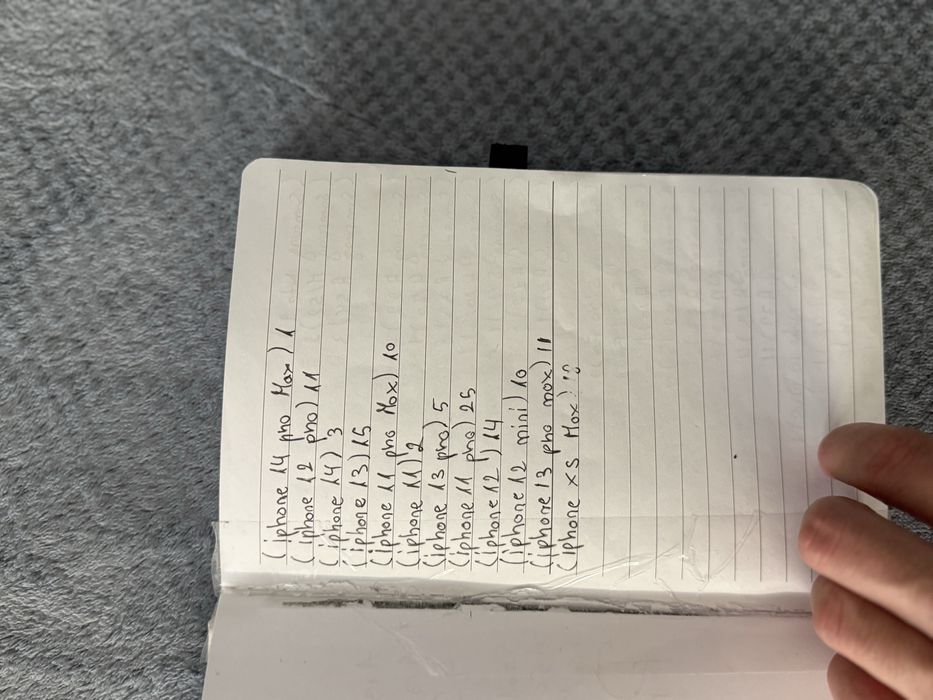 (iphone 14 pho Max) 1
(iphone 12 pho) 11
(iphone 14) 3
(iphone 13) 15
(iphone 11 pho Max) 10
(iphone 11) 2
(iphone 13 pho) 5
(iphone 11 pho) 25
(iphone 12) 14
(iphone 12 mini) 10
(iphone 13 pho max) 11
(iphone xs Max)